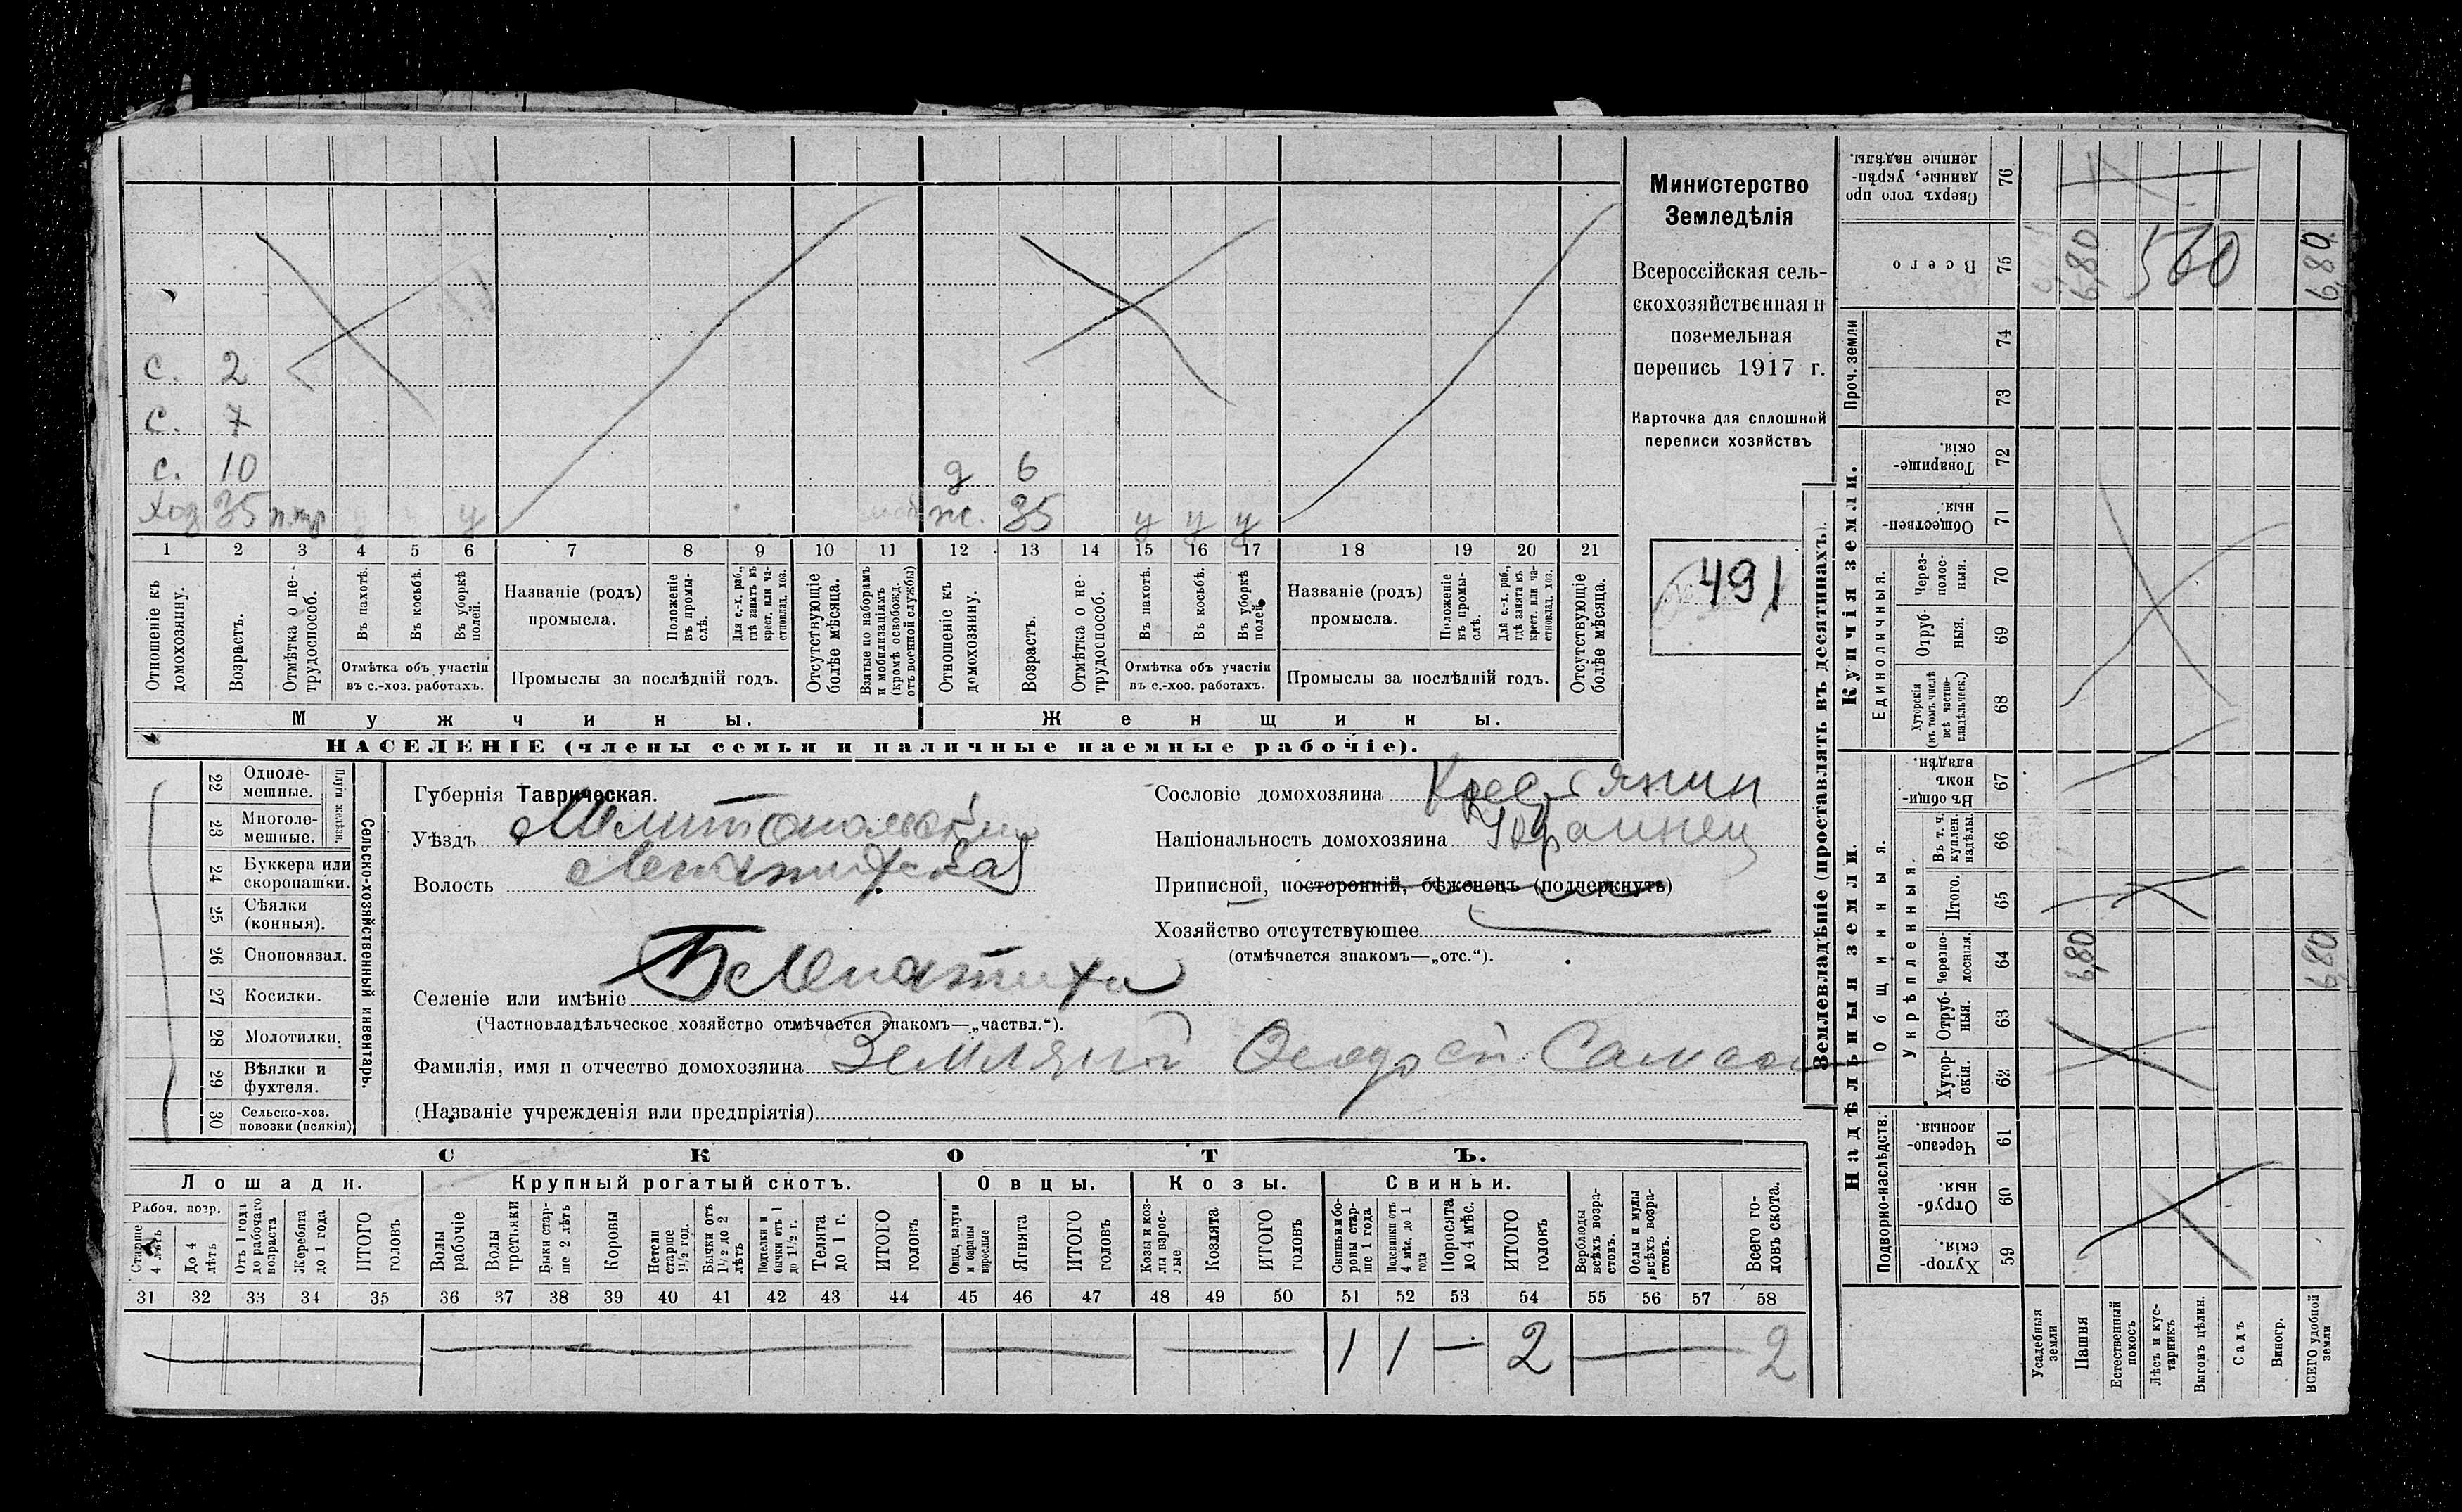 с. 2
с. 7
с. 10 д 6
хоз 35 у ж. 35 у у у
1 2 3 4 5 6 7 8 9 10 11 12 13 14 15 16 17 18 19 20 21
Отношеніе къ домохозяину.
Возрастъ.
Отмѣтка о не-трудоспособ.
Въ пахотѣ.
Въ косьбѣ.
Въ уборкѣ полей.
Отмѣтка объ участіи
въ с.-хоз. работахъ.
Названіе (родъ)
промысла.
Положеніе въ промы-слѣ.
Для с.-х. раб., гдѣ занятъ въ крест. или ча-стновлад. хоз.
Промыслы за послѣдній годъ.
Отсутствующіе болѣе мѣсяца.
Взятые по наборамъ и мобилизаціямъ (кромѣ освобожд. отъ военной службы)
Отношеніе къ домохозяину.
Возрастъ.
Отмѣтка о не-трудоспособ.
Въ пахотѣ.
Въ косьбѣ.
Въ уборкѣ полей.
Отмѣтка объ участіи
въ с.-хоз. работахъ.
Названіе (родъ)
промысла.
Положеніе въ промы-слѣ.
Для с.-х. раб., гдѣ занята въ крест. или ча-стновлад. хоз.
Промыслы за послѣдній годъ.
Отсутствующіе болѣе мѣсяца.
Мужчины.
Женщины.
НАСЕЛЕНІЕ (члены семьи и наличные наемные рабочіе).
Министерство
Земледѣлія
Всероссійская сель-
скохозяйственная и
поземельная
перепись 1917 г.
Карточка для сплошной
переписи хозяйствъ
491
22 Одноле-мешные.
23 Многоле-мешные.
24 Буккера или скоропашки.
25 Сѣялки (конныя).
26 Сноповязал.
27 Косилки.
28 Молотилки.
29 Вѣялки и фухтеля.
30 Сельско-хоз. повозки (всякія)
Сельско-хозяйственный инвентарь.
Губернія Таврическая.
Уѣздъ Мелитопольскій
Волость Лепатихская
Селеніе или имѣніе Б Лепатиха
(Частновладѣльческое хозяйство отмѣчается знакомъ—„частвл.“).
Фамилія, имя и отчество домохозяина Земляной Федосей Самсон
(Названіе учрежденія или предпріятія)
Сословіе домохозяина Крестянин
Національность домохозяина Украинец
Приписной, посторонній, бѣженецъ (подчеркнуть)
Хозяйство отсутствующее
(отмѣчается знакомъ—„отс.“).
СКОТЪ.
Лошади.
Крупный рогатый скотъ.
Овцы.
Козы.
Свиньи.
Рабоч. возр.
Старше 4 лѣтъ
До 4 лѣтъ
Отъ 1 года до рабочаго возраста
Жеребята до 1 года
ИТОГО головъ
Волы рабочіе
Волы
Быки стар-ше 2 лѣтъ
Коровы
Нетели старше 1½ год.
Бычки отъ 1½ до 2 лѣтъ
Подтелки и бычки отъ 1 до 1½ г.
Телята до 1 г.
ИТОГО головъ
Овцы, валухи и бараны взрослые
Ягнята
ИТОГО головъ
Козы и коз-лы взрос-лые
Козлята
ИТОГО головъ
Свиньи и бо-ровы стар-ше 1 года
Подсвинки отъ 4 мѣс. до 1 года
Поросята до 4 мѣс.
ИТОГО головъ
Верблюды всѣхъ возра-стовъ.
Ослы и мулы всѣхъ возра-стовъ.
Всего го-ловъ скота.
31 32 33 34 35 36 37 38 39 40 41 42 43 44 45 46 47 48 49 50 51 52 53 54 55 56 57 58
1 1 — 2 2
Землевладѣніе (проставлять въ десятинахъ).
Надѣльныя земли.
Купчія земли.
Проч. земли
Подворно-наслѣдств.
Общинныя.
Укрѣпленныя.
Единоличныя.
59 Хутор-скія.
60 Отруб-ныя.
61 Черезпо-лосныя.
62 Хутор-скія.
63 Отруб-ныя.
64 Черезпо-лосныя. 6,80 6,80
65 Итого.
66 Въ т. ч. куплен. надѣлы.
67 Въ общи-номъ владѣн.
68 Хуторскія (въ томъ числѣ всѣ частно-владѣльческ.)
69 Отруб-ныя.
70 Через-полос-ныя.
71 Обществен-ныя.
72 Товарище-скія.
73
74
75 Всего 6,80 560 6,80
76 Сверхъ того про-данные, укрѣп-ленные надѣлы.
Усадебныя земли
Пашня
Естественный покосъ
Лѣсъ и кус-тарникъ
Выгонъ цѣлин.
Садъ
Виногр.
ВСЕГО удобной земли